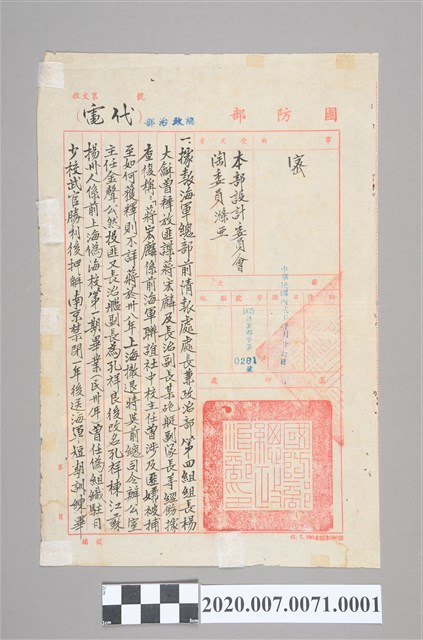 國防部
總政治部
代電
密
本部設計委員會
閻委員滌亞
0201
號
一、據報海軍總部前情報處處長兼政治部第四組組長楊
大鯀曾釋放匪諜蔣宏麟及長治副長某砲艇副隊長等經防據
查復稱「蔣宏麟係前海軍聯誼社中校主任曾涉及匪嫌被捕
至如何獲釋則不詳蔣於卅八年上海撤退時與前總司令辦公室
主任金聲公然投匪又長治艦副長為孔祥良後改名孔祥棟江蘇
揚州人係前上海偽海校第一期畢業(民卅年)曾任偽組織駐日
少校武官勝利後押解南京禁閉一年後送海軍短期訓練畢
2020.007.0071.0001